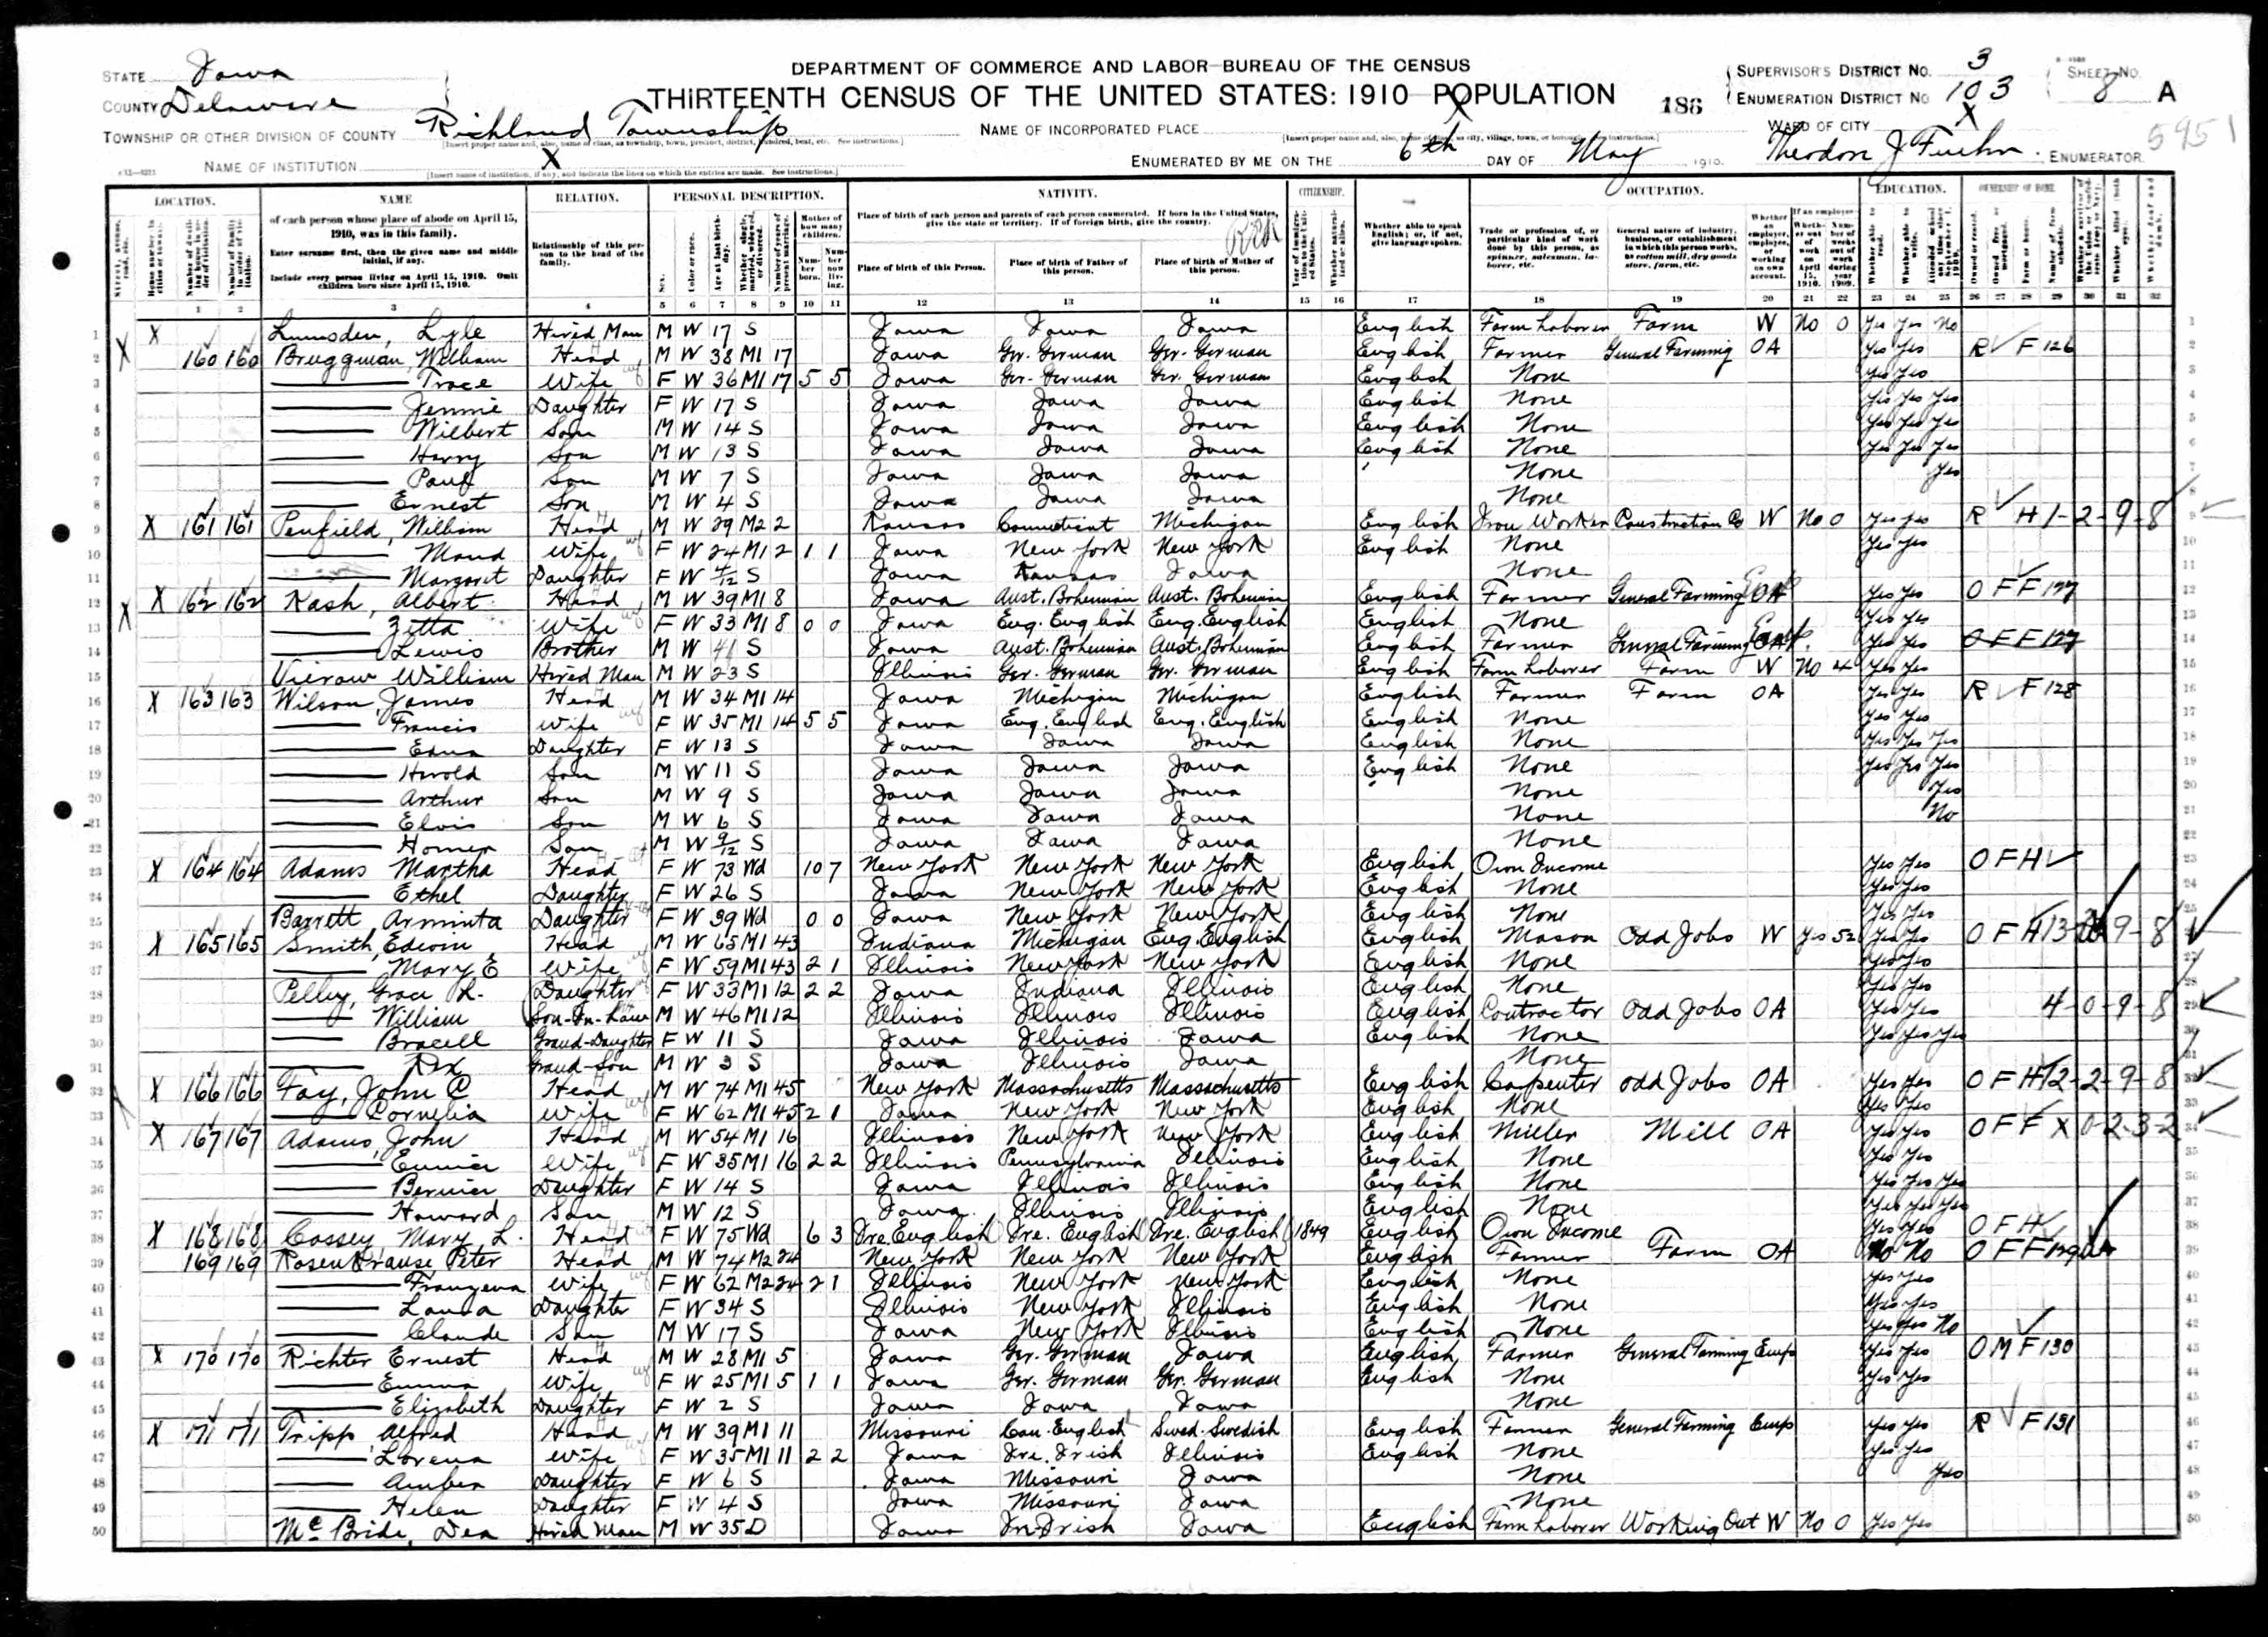 DEPARTMENT OF COMMERCE AND LABOR—BUREAU OF THE CENSUS
THIRTEENTH CENSUS OF THE UNITED STATES: 1910 POPULATION
STATE Iowa
COUNTY Delaware
TOWNSHIP OR OTHER DIVISION OF COUNTY Richland Township
NAME OF INSTITUTION X
NAME OF INCORPORATED PLACE X
ENUMERATED BY ME ON THE 6th DAY OF May 1910.
186
SUPERVISOR'S DISTRICT NO. 3
ENUMERATION DISTRICT NO. 103
SHEET NO. 8 A
WARD OF CITY X
ENUMERATOR.
5951
LOCATION. NAME RELATION. PERSONAL DESCRIPTION. NATIVITY. CITIZENSHIP. OCCUPATION. EDUCATION. OWNERSHIP OF HOME.
of each person whose place of abode on April 15, 1910, was in this family.
Enter surname first, then the given name and middle initial, if any.
Include every person living on April 15, 1910. Omit children born since April 15, 1910.
Relationship of this person to the head of the family.
Place of birth of each person and parents of each person enumerated. If born in the United States, give the state or territory. If of foreign birth, give the country.
Place of birth of this Person. Place of birth of Father of this person. Place of birth of Mother of this person.
Whether able to speak English; or, if not, give language spoken.
1 2 3 4 5 6 7 8 9 10 11 12 13 14 15 16 17 18 19 20 21 22 23 24 25 26 27 28 29 30 31 32
1 X Lumsden, Lyle Hired Man M W 17 S Iowa Iowa Iowa English Farm Laborer Farm W No 0 Yes Yes No
2 160 160 Bruggman, William Head M W 38 M1 17 Iowa Ger. German Ger. German English Farmer General Farming OA Yes Yes R F 126
3 Trace Wife F W 36 M1 17 5 5 Iowa Ger. German Ger. German English None Yes Yes
4 Jennie Daughter F W 17 S Iowa Iowa Iowa English None Yes Yes Yes
5 Wilbert Son M W 14 S Iowa Iowa Iowa English None Yes Yes Yes
6 Harry Son M W 13 S Iowa Iowa Iowa English None Yes Yes Yes
7 Paul Son M W 7 S Iowa Iowa Iowa None Yes
8 Ernest Son M W 4 S Iowa Iowa Iowa None
9 X 161 161 Penfield, William Head M W 29 M2 2 Kansas Connecticut Michigan English Iron Worker Construction Co W No 0 Yes Yes R H 1-2-9-8
10 Maud Wife F W 24 M1 2 1 1 Iowa New York New York English None Yes Yes
11 Margaret Daughter F W 4/12 S Iowa Kansas Iowa None
12 X 162 162 Kash, Albert Head M W 39 M1 8 Iowa Aust. Bohemian Aust. Bohemian English Farmer General Farming Yes Yes O F F 127
13 Zitta Wife F W 33 M1 8 0 0 Iowa Eng. English Eng. English English None Yes Yes
14 Lewis Brother M W 41 S Iowa Aust. Bohemian Aust. Bohemian English Farmer General Farming Yes Yes O F F 127
15 Vierow William Hired Man M W 23 S Illinois Ger. German Ger. German English Farm Laborer Farm W No 4 Yes Yes
16 X 163 163 Wilson, James Head M W 34 M1 14 Iowa Michigan Michigan English Farmer Farm OA Yes Yes R F 128
17 Francis Wife F W 35 M1 14 5 5 Iowa Eng. English Eng. English English None Yes Yes
18 Edna Daughter F W 13 S Iowa Iowa Iowa English None Yes Yes Yes
19 Herold Son M W 11 S Iowa Iowa Iowa English None Yes Yes Yes
20 Arthur Son M W 9 S Iowa Iowa Iowa None Yes
21 Elvis Son M W 6 S Iowa Iowa Iowa None No
22 Homer Son M W 9/12 S Iowa Iowa Iowa None
23 X 164 164 Adams Martha Head F W 73 Wd 10 7 New York New York New York English Own Income Yes Yes O F H
24 Ethel Daughter F W 26 S Iowa New York New York English None Yes Yes
25 Barrett Arminta Daughter F W 39 Wd 0 0 Iowa New York New York English None Yes Yes
26 X 165 165 Smith, Edwin Head M W 65 M1 43 Indiana Michigan Eng. English English Mason Odd Jobs W Yes 52 Yes Yes O F H
27 Mary E Wife F W 59 M1 43 2 1 Illinois New York New York English None Yes Yes
28 Pelley, Grace L. Daughter F W 33 M1 12 2 2 Iowa Indiana Illinois English None Yes Yes
29 William Son-In-Law M W 46 M1 12 Illinois Illinois Illinois English Contractor Odd Jobs OA Yes Yes 4-0-9-8
30 Grand-Daughter F W 11 S Iowa Illinois Iowa English None Yes Yes Yes
31 Rex Grand-Son M W 3 S Iowa Illinois Iowa None
32 X 166 166 Fay, John C Head M W 74 M1 45 New York Massachusetts Massachusetts English Carpenter Odd Jobs OA Yes Yes O F H 12-2-9-8
33 Cornelia Wife F W 62 M1 45 2 1 Iowa New York New York English None Yes Yes
34 X 167 167 Adams, John Head M W 54 M1 16 Illinois New York New York English Miller Mill OA Yes Yes O F F X 0-2-3-2
35 Eunice Wife F W 35 M1 16 2 2 Illinois Pennsylvania Illinois English None Yes Yes
36 Bernice Daughter F W 14 S Iowa Illinois Illinois English None Yes Yes Yes
37 Howard Son M W 12 S Iowa Illinois Illinois English None Yes Yes Yes
38 X 168 168 Cossey Mary L. Head F W 75 Wd 6 3 Ire. English Ire. English Ire. English 1849 English Own Income Yes Yes O F H
39 169 169 Rosenkrause Peter Head M W 74 M2 24 New York New York New York English Farmer Farm OA No No O F F 129
40 Wife F W 62 M2 24 2 1 Illinois New York New York English None Yes Yes
41 Laura Daughter F W 34 S Illinois New York Illinois English None Yes Yes
42 Claude Son M W 17 S Iowa New York Illinois English None Yes Yes No
43 X 170 170 Richter Ernest Head M W 28 M1 5 Iowa Ger. German Iowa English Farmer General Farming Emp Yes Yes O M F 130
44 Emma Wife F W 25 M1 5 1 1 Iowa Ger. German Ger. German English None Yes Yes
45 Elizabeth Daughter F W 2 S Iowa Iowa Iowa None
46 X 171 171 Tripp Alfred Head M W 39 M1 11 Missouri Can. English Swed. Swedish English Farmer General Farming Emp Yes Yes R F 131
47 Lorena Wife F W 35 M1 11 2 2 Iowa Ire. Irish Illinois English None Yes Yes
48 Amber Daughter F W 6 S Iowa Missouri Iowa None Yes
49 Helen Daughter F W 4 S Iowa Missouri Iowa None
50 McBride, Dea Hired Man M W 35 D Iowa Irish Iowa English Farm Laborer Working Out W No 0 Yes Yes